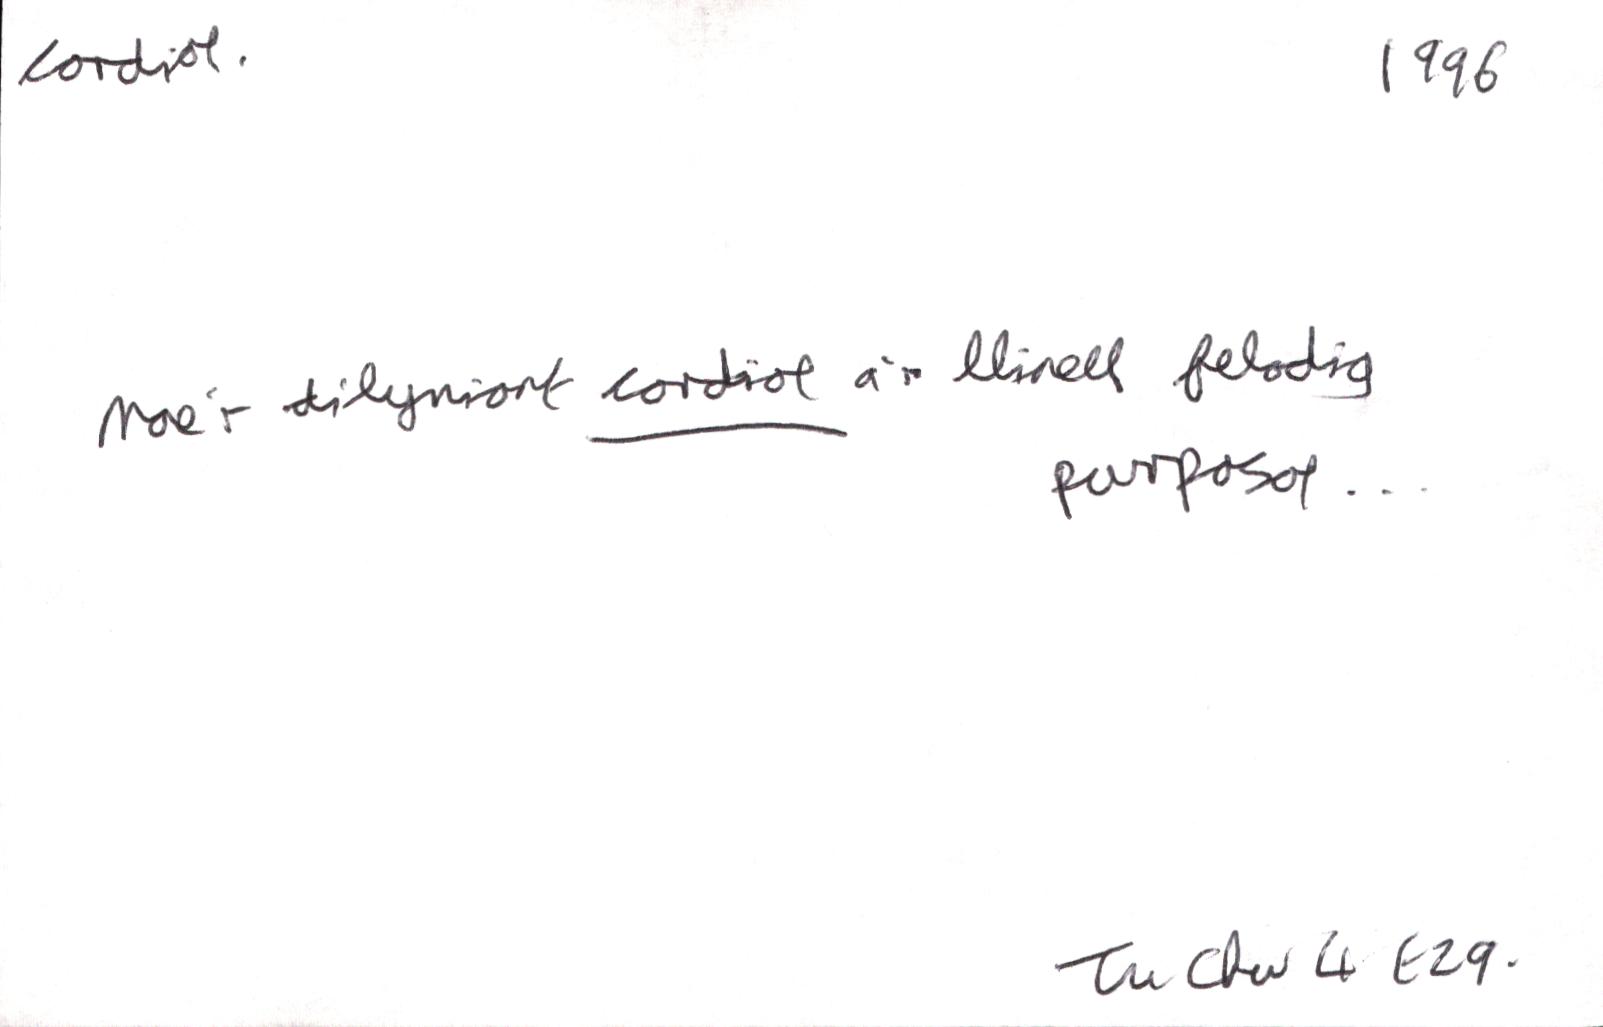 cordiol. 1996
Mae'r dilyniant cordiol a'r llinell felodig
purposol...
Tu Chw 4 t29.